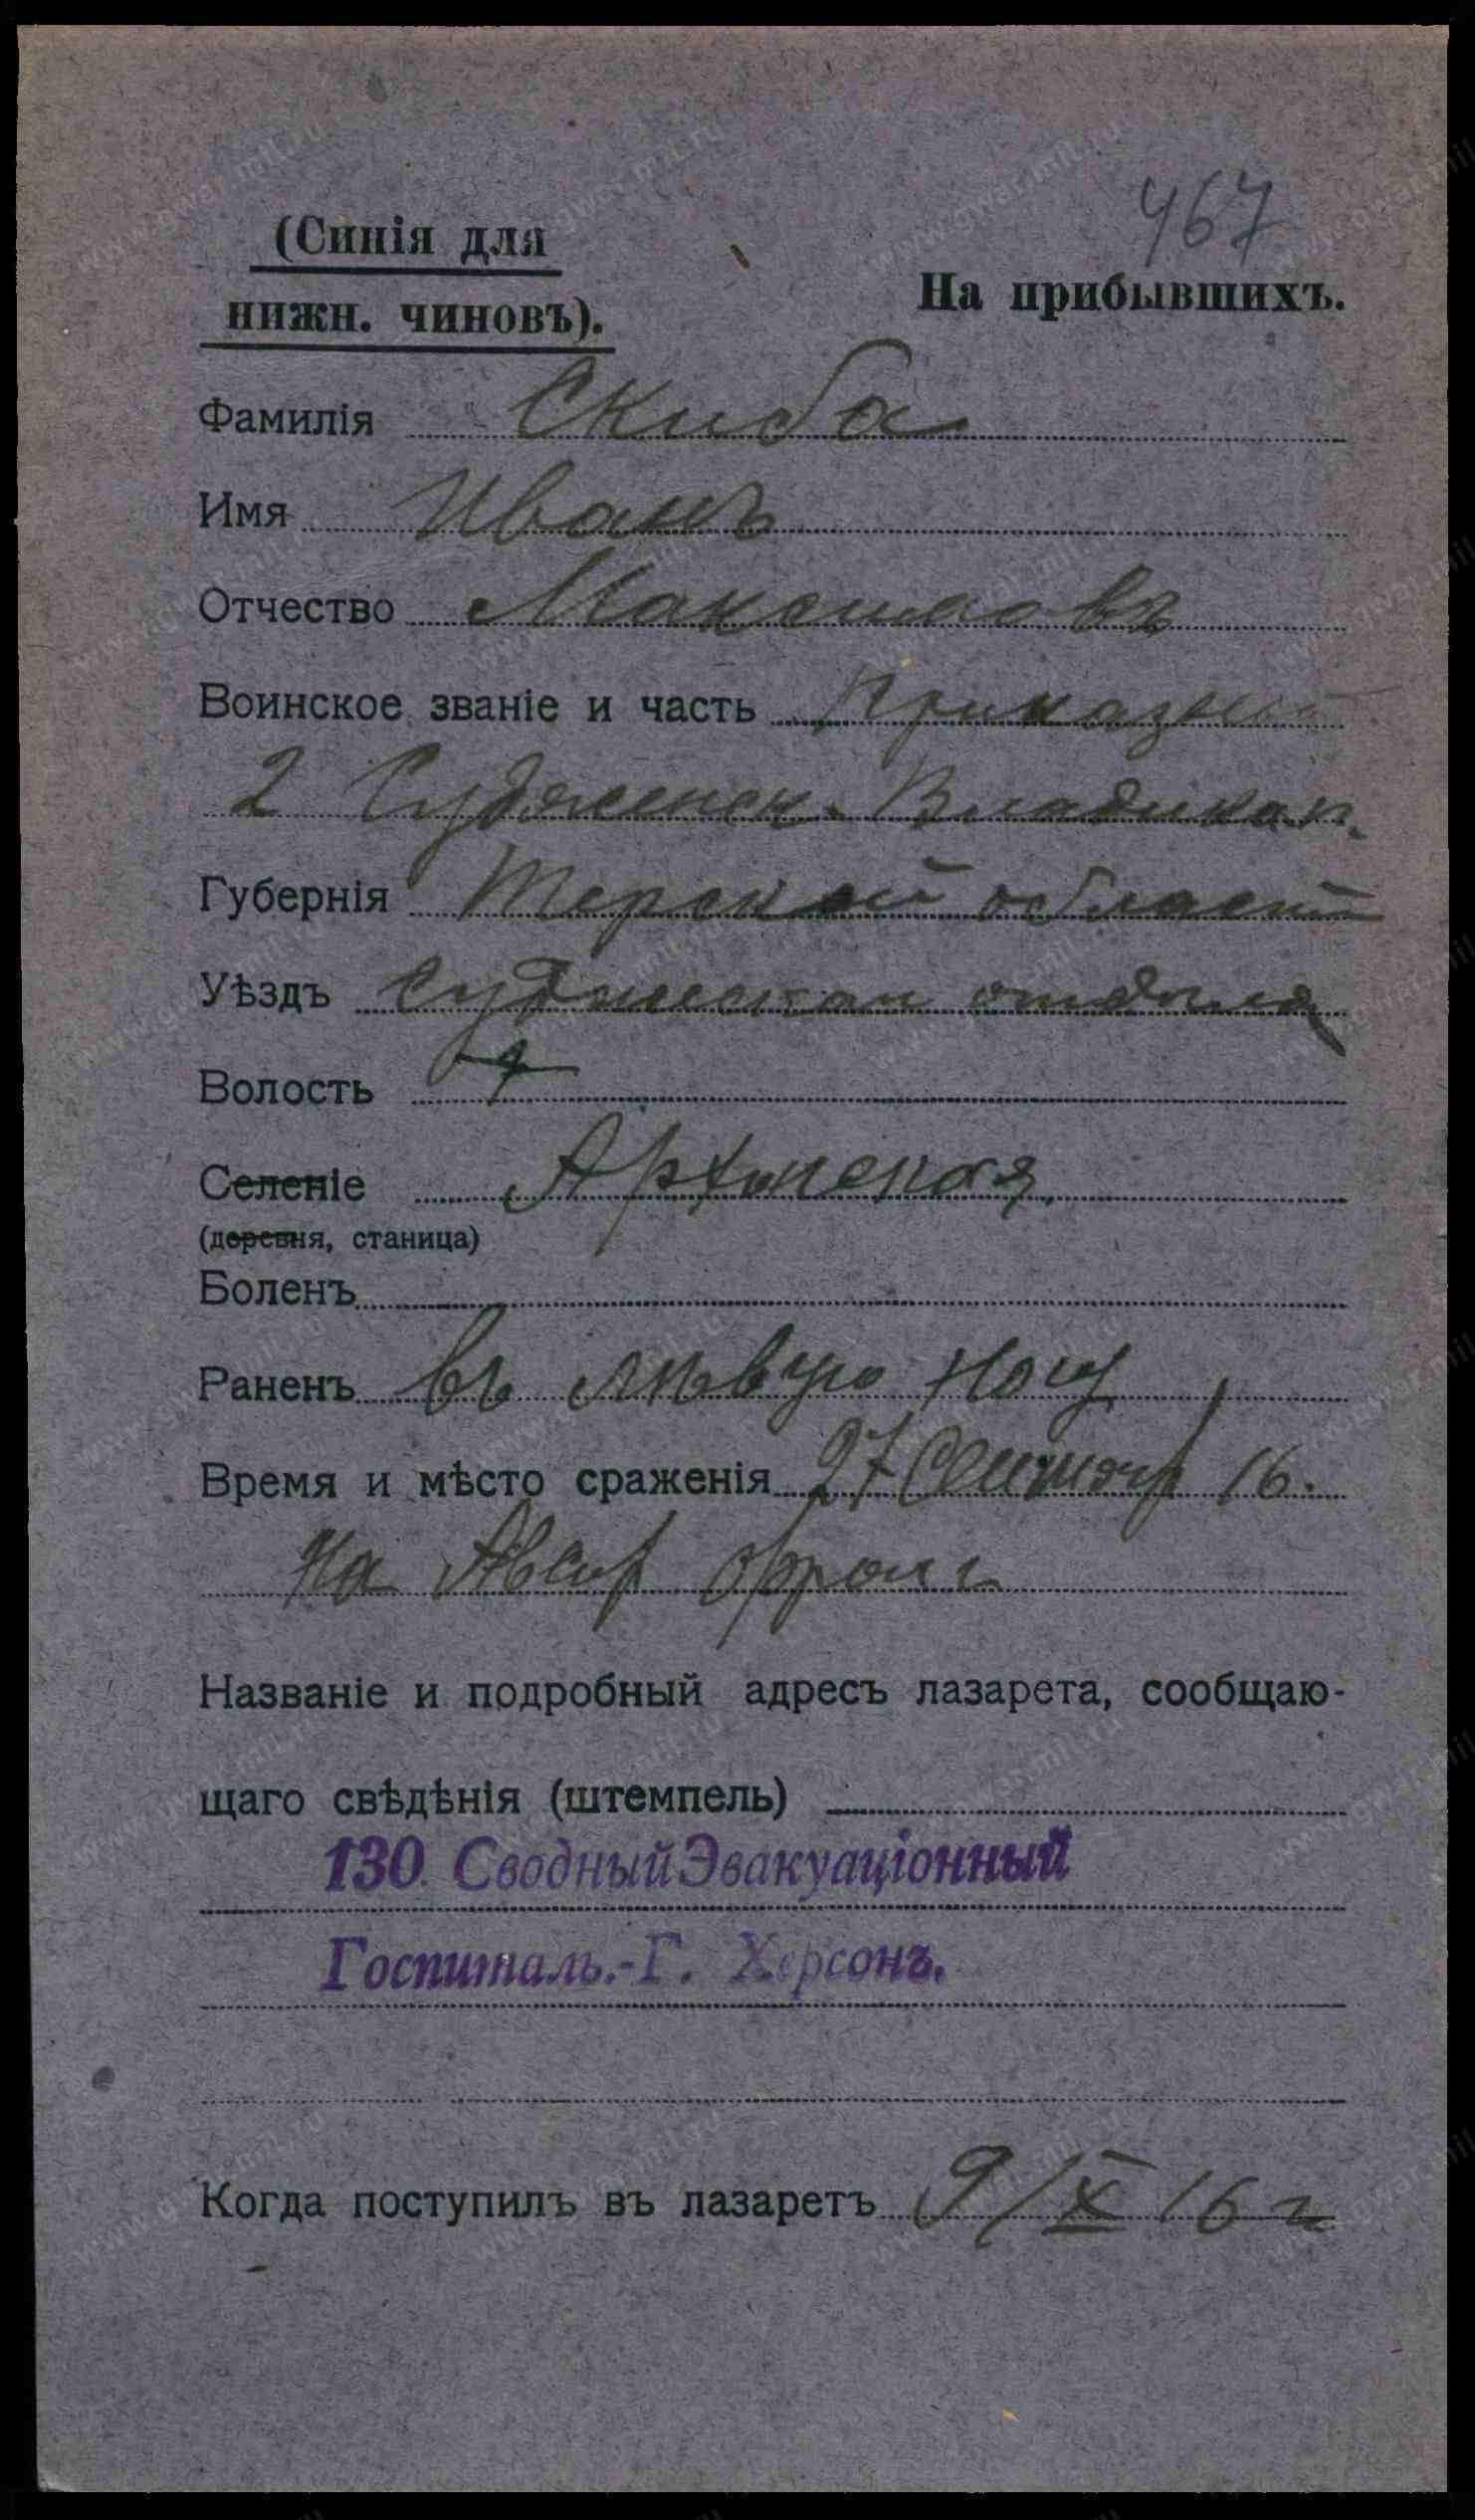 467
(Синія для
нижн. чиновъ).
На прибывшихъ.
Фамилія Скиба
Имя Иванъ
Отчество Максимовъ
Воинское званіе и часть Приказный
2 Сунженск. Владикав.
Губернія Терской области
Уѣздъ Сунженскаго отдѣла
Волость
Селеніе Архонская
(деревня, станица)
Боленъ
Раненъ въ лѣвую ногу
Время и мѣсто сраженія 27 Сентяб 16.
На Авст фронт
Названіе и подробный адресъ лазарета, сообщаю-
щаго свѣдѣнія (штемпель)
130 Сводный Эвакуаціонный
Госпиталь.-Г. Херсонъ.
Когда поступилъ въ лазаретъ 9/X 16 г